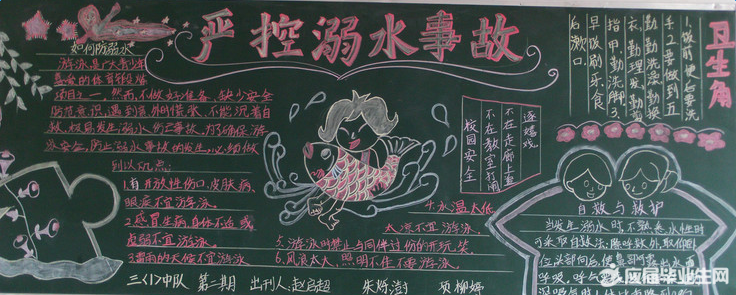 严控溺水事故
如何防溺水
游泳是广大青少年
喜爱的体育锻炼
项目之一。然而,不做好准备、缺少安全
防范意识,遇到意外时慌张、不能沉着自
救,极易发生溺水伤亡事故。为了确保游
泳安全,防止溺水事故的发生,必须做
到以下几点:
1.有开放性伤口、皮肤病、
眼疾不宜游泳。
2.感冒生病、身体不适或
虚弱不宜游泳。
3.雷雨的天候不宜游泳
4.水温太低
太凉不宜游泳。
5.游泳时禁止与同伴过份的开玩笑
6.风浪太大、照明不佳不要游泳。
三<1>中队 第二期 出刊人:赵启超 朱烁澍 项柳婷
校园安全
不在教室打闹
不在走廊上追
逐嬉戏。
卫生角
1、饭前便后要洗
手2、要做到五
勤勤洗澡勤换
衣、勤理发、勤剪
指甲、勤洗脚3、
早饭刷牙、食
后漱口
自救与救护
当发生溺水时,不熟悉水性时
可采取自救法:除呼救外,取仰卧
位,头部向后,使鼻部可露出水面
呼吸。
应届毕业生网